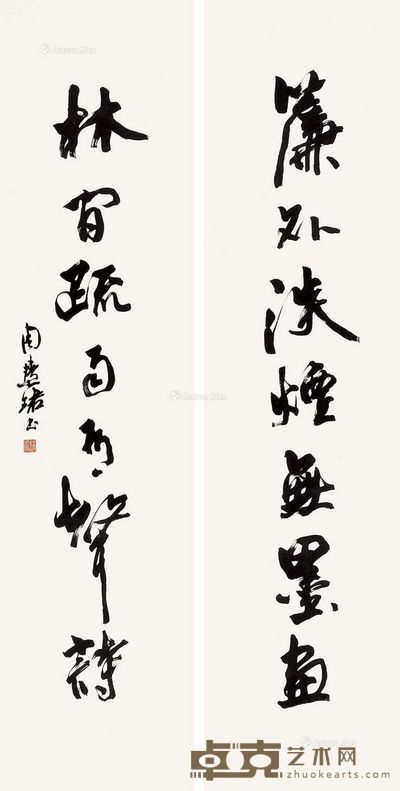 簾外淡煙無墨畫
林間疏雨有聲詩
周慧珺書
卓克艺术网
zhuokearts.com
Artron.Net
Artron.Net
Artron.Net
Artron.Net